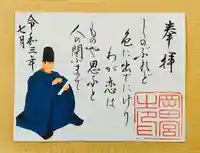 奉拝
しのぶれど
色に出でにけり
わが恋は
ものや思ふと
人の問ふまで
令和三年
七月